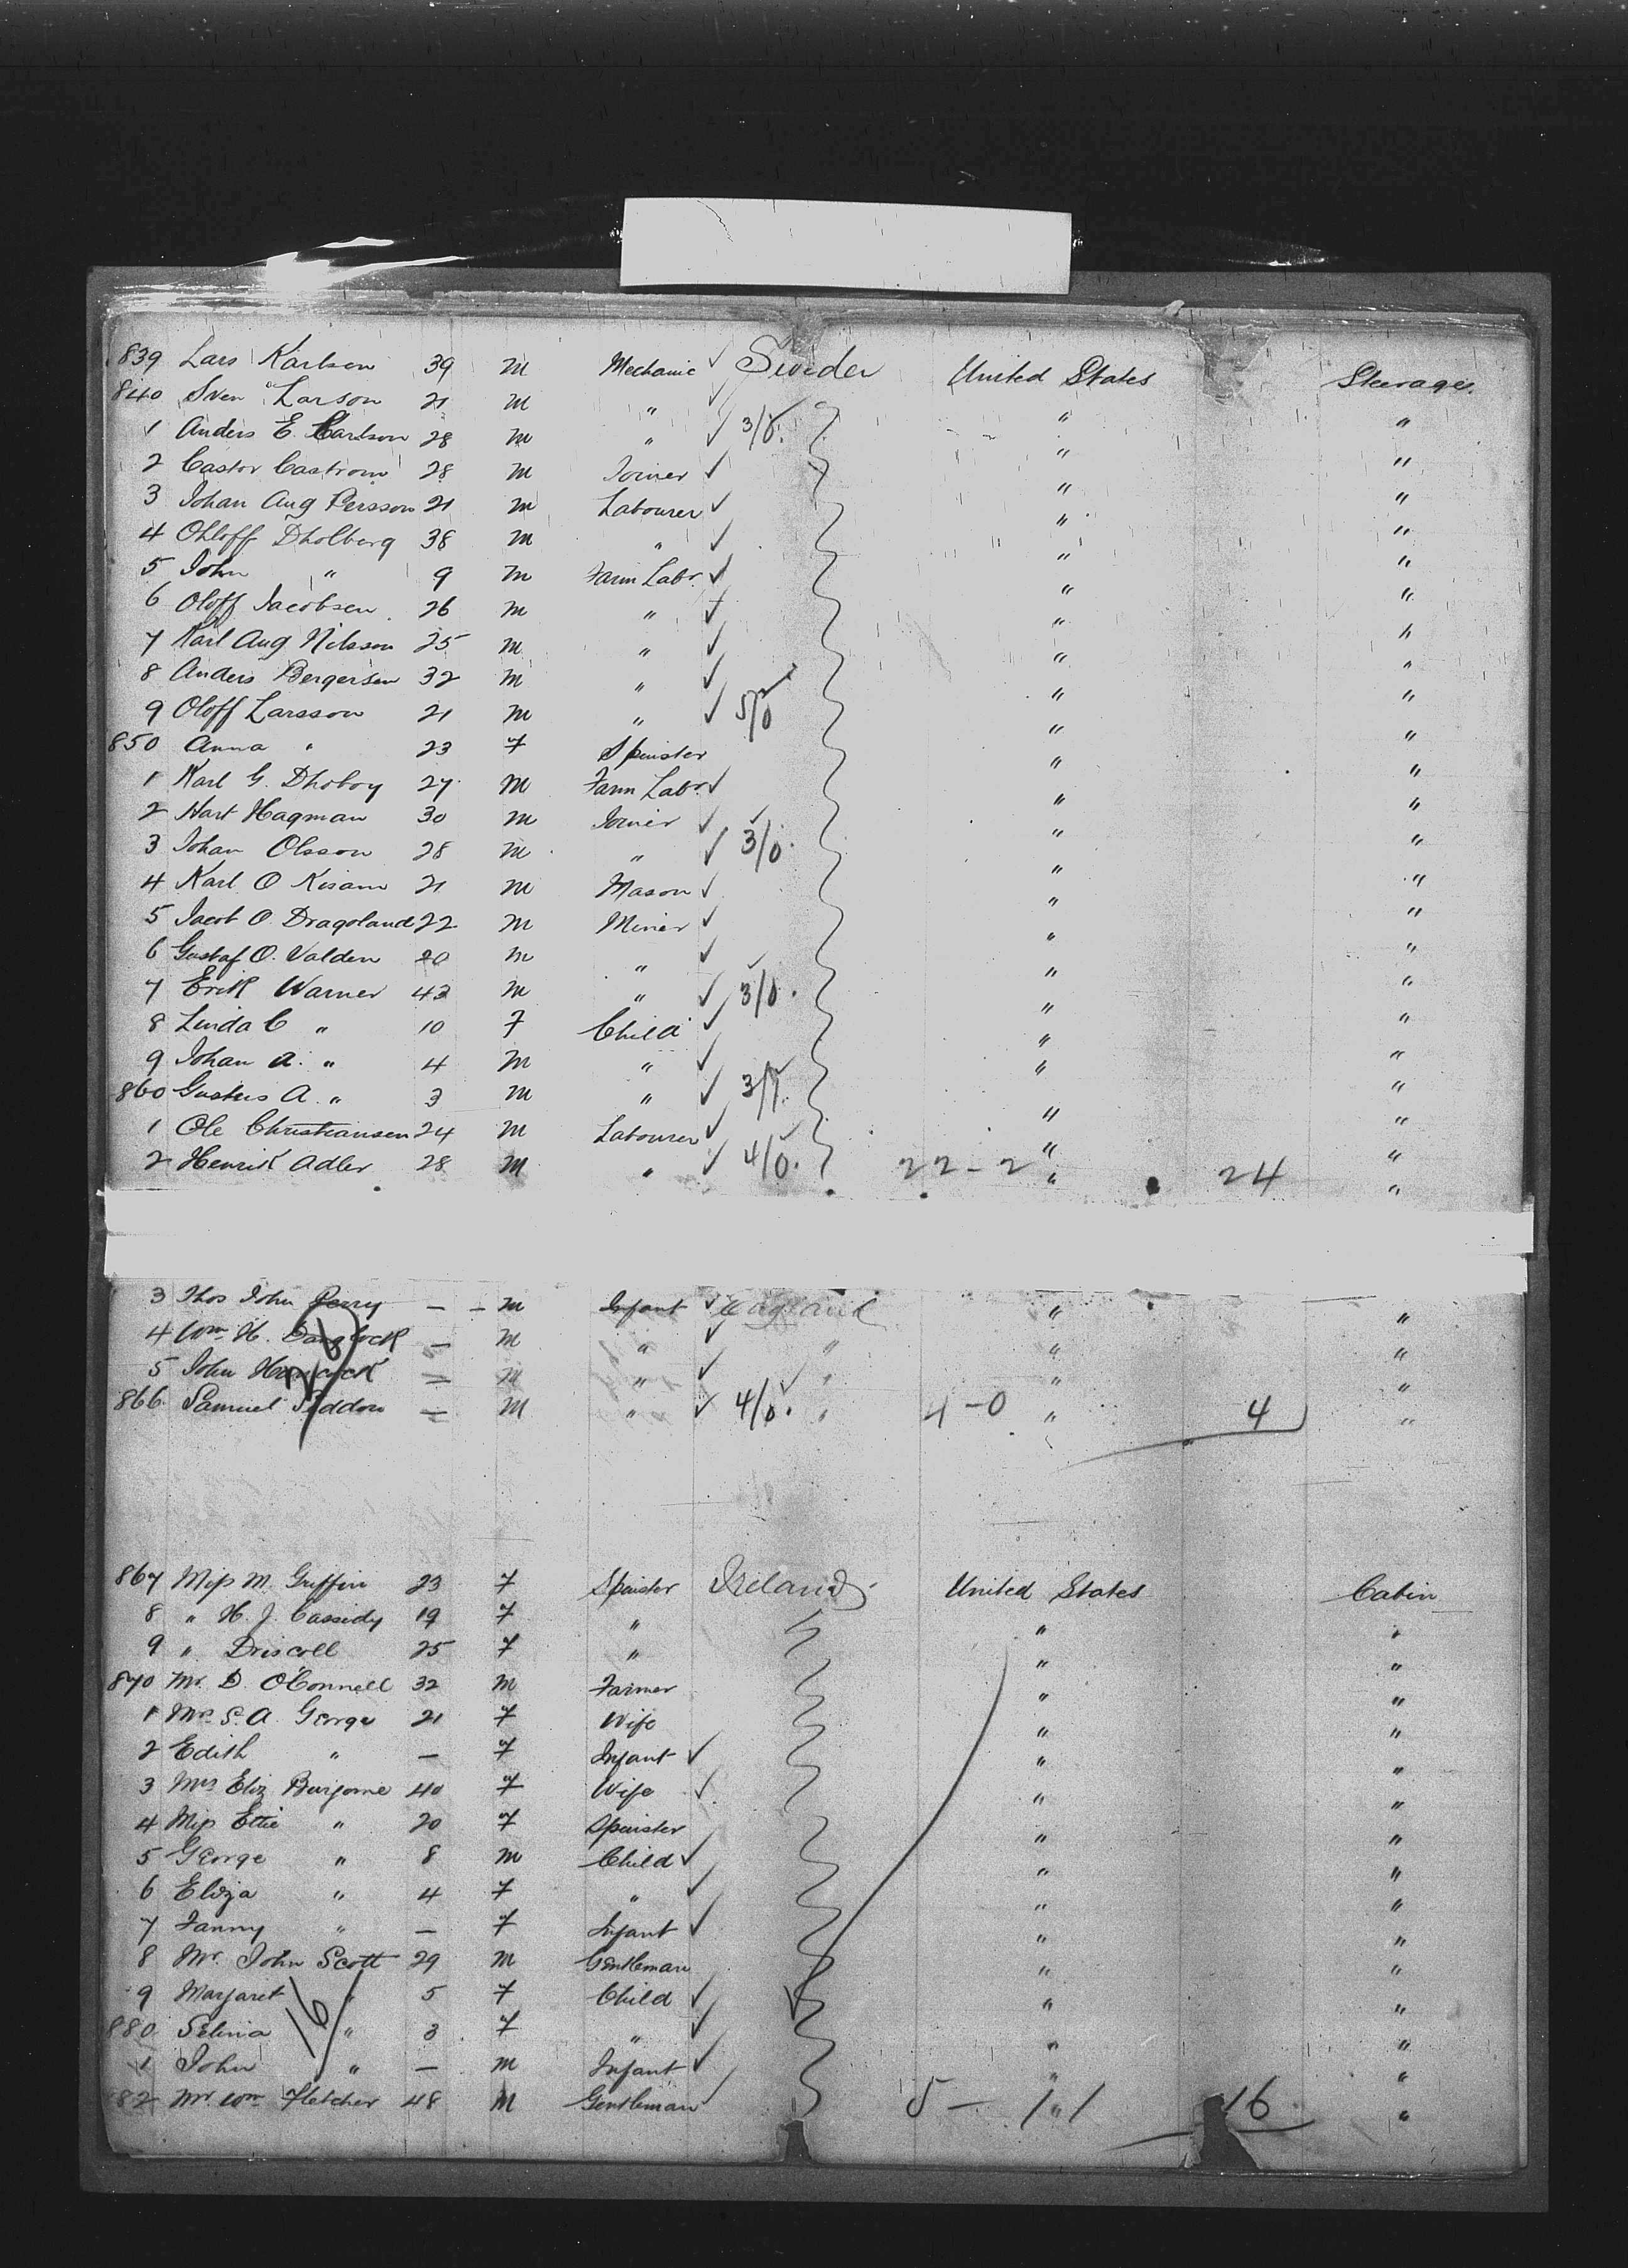 839 Lars Karlson 39 m Mechanic ✓ Sweden United States Steerage
840 Sven Larson 21 m " ✓ " "
1 Anders E. Carlson 28 m " ✓ 3/0. " "
2 Castor Castrom 28 m Joiner ✓ " "
3 Johan Aug Persson 21 m Labourer ✓ " "
4 Ohloff Dholberg 38 m " ✓ " "
5 John " 9 m Farm Labr. ✓ " "
6 Oloff Jacobsen 26 m " ✓ " "
7 Karl Aug Nilsson 25 m " ✓ " "
8 Anders Bergersen 32 m " ✓ " "
9 Oloff Larsson 21 m " ✓ 5/0 " "
850 Anna " 23 F Spinster " "
1 Karl G. Dhoboy 27 m Farm Labr ✓ " "
2 Hart Hagman 30 m Joiner ✓ " "
3 Johan Olsson 28 m " ✓ 3/0. " "
4 Karl O Kisam 21 m Mason ✓ " "
5 Jacob O. Dragoland 22 m Miner ✓ " "
6 Gustaf O. Valden 20 m " ✓ " "
7 Erik Warner 43 m " ✓ 3/0. " "
8 Linda C " 10 F Child ✓ " "
9 Johan A. " 4 m " ✓ " "
860 A. " 3 m " ✓ " "
1 Ole Christiansen 24 m Labourer ✓ " "
2 Henrik Adler 28 m " ✓ 4/0. 22-2 " 24 "
3 Thos John Perry — m Infant ✓ England " "
4 Wm H. — m " ✓ " " "
5 John Hancock — m " ✓ " " "
866 Samuel Seddon — m " ✓ 4/0. " 4-0 " 4 "
867 Miss M. Griffin 23 F Spinster Ireland United States Cabin
8 " H. J. Cassidy 19 F " " "
9 " Driscoll 25 F " " "
870 Mr. D. O'Connell 32 m Farmer " "
1 Mrs S. A. George 21 F Wife " "
2 Edith " — F Infant ✓ " "
3 Mrs Eliz Burgome 40 F Wife ✓ " "
4 Miss Ettie " 20 F Spinster " "
5 George " 8 m Child ✓ " "
6 Eliza " 4 F " ✓ " "
7 Fanny " — F Infant ✓ " "
8 Mr. John Scott 29 m Gentleman " "
9 Margaret " 5 F Child ✓ " "
880 Selina " 3 F " ✓ " "
1 John " — m Infant ✓ " "
82 Mr. Wm Fletcher 48 m Gentleman ✓ 5 — 11 " 16 "